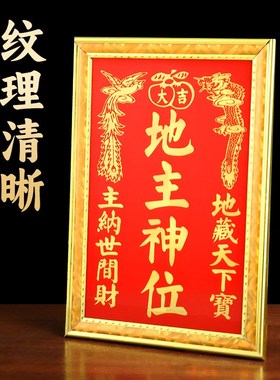 纹理清晰
大吉
地主神位
地藏天下寶
主納世間財